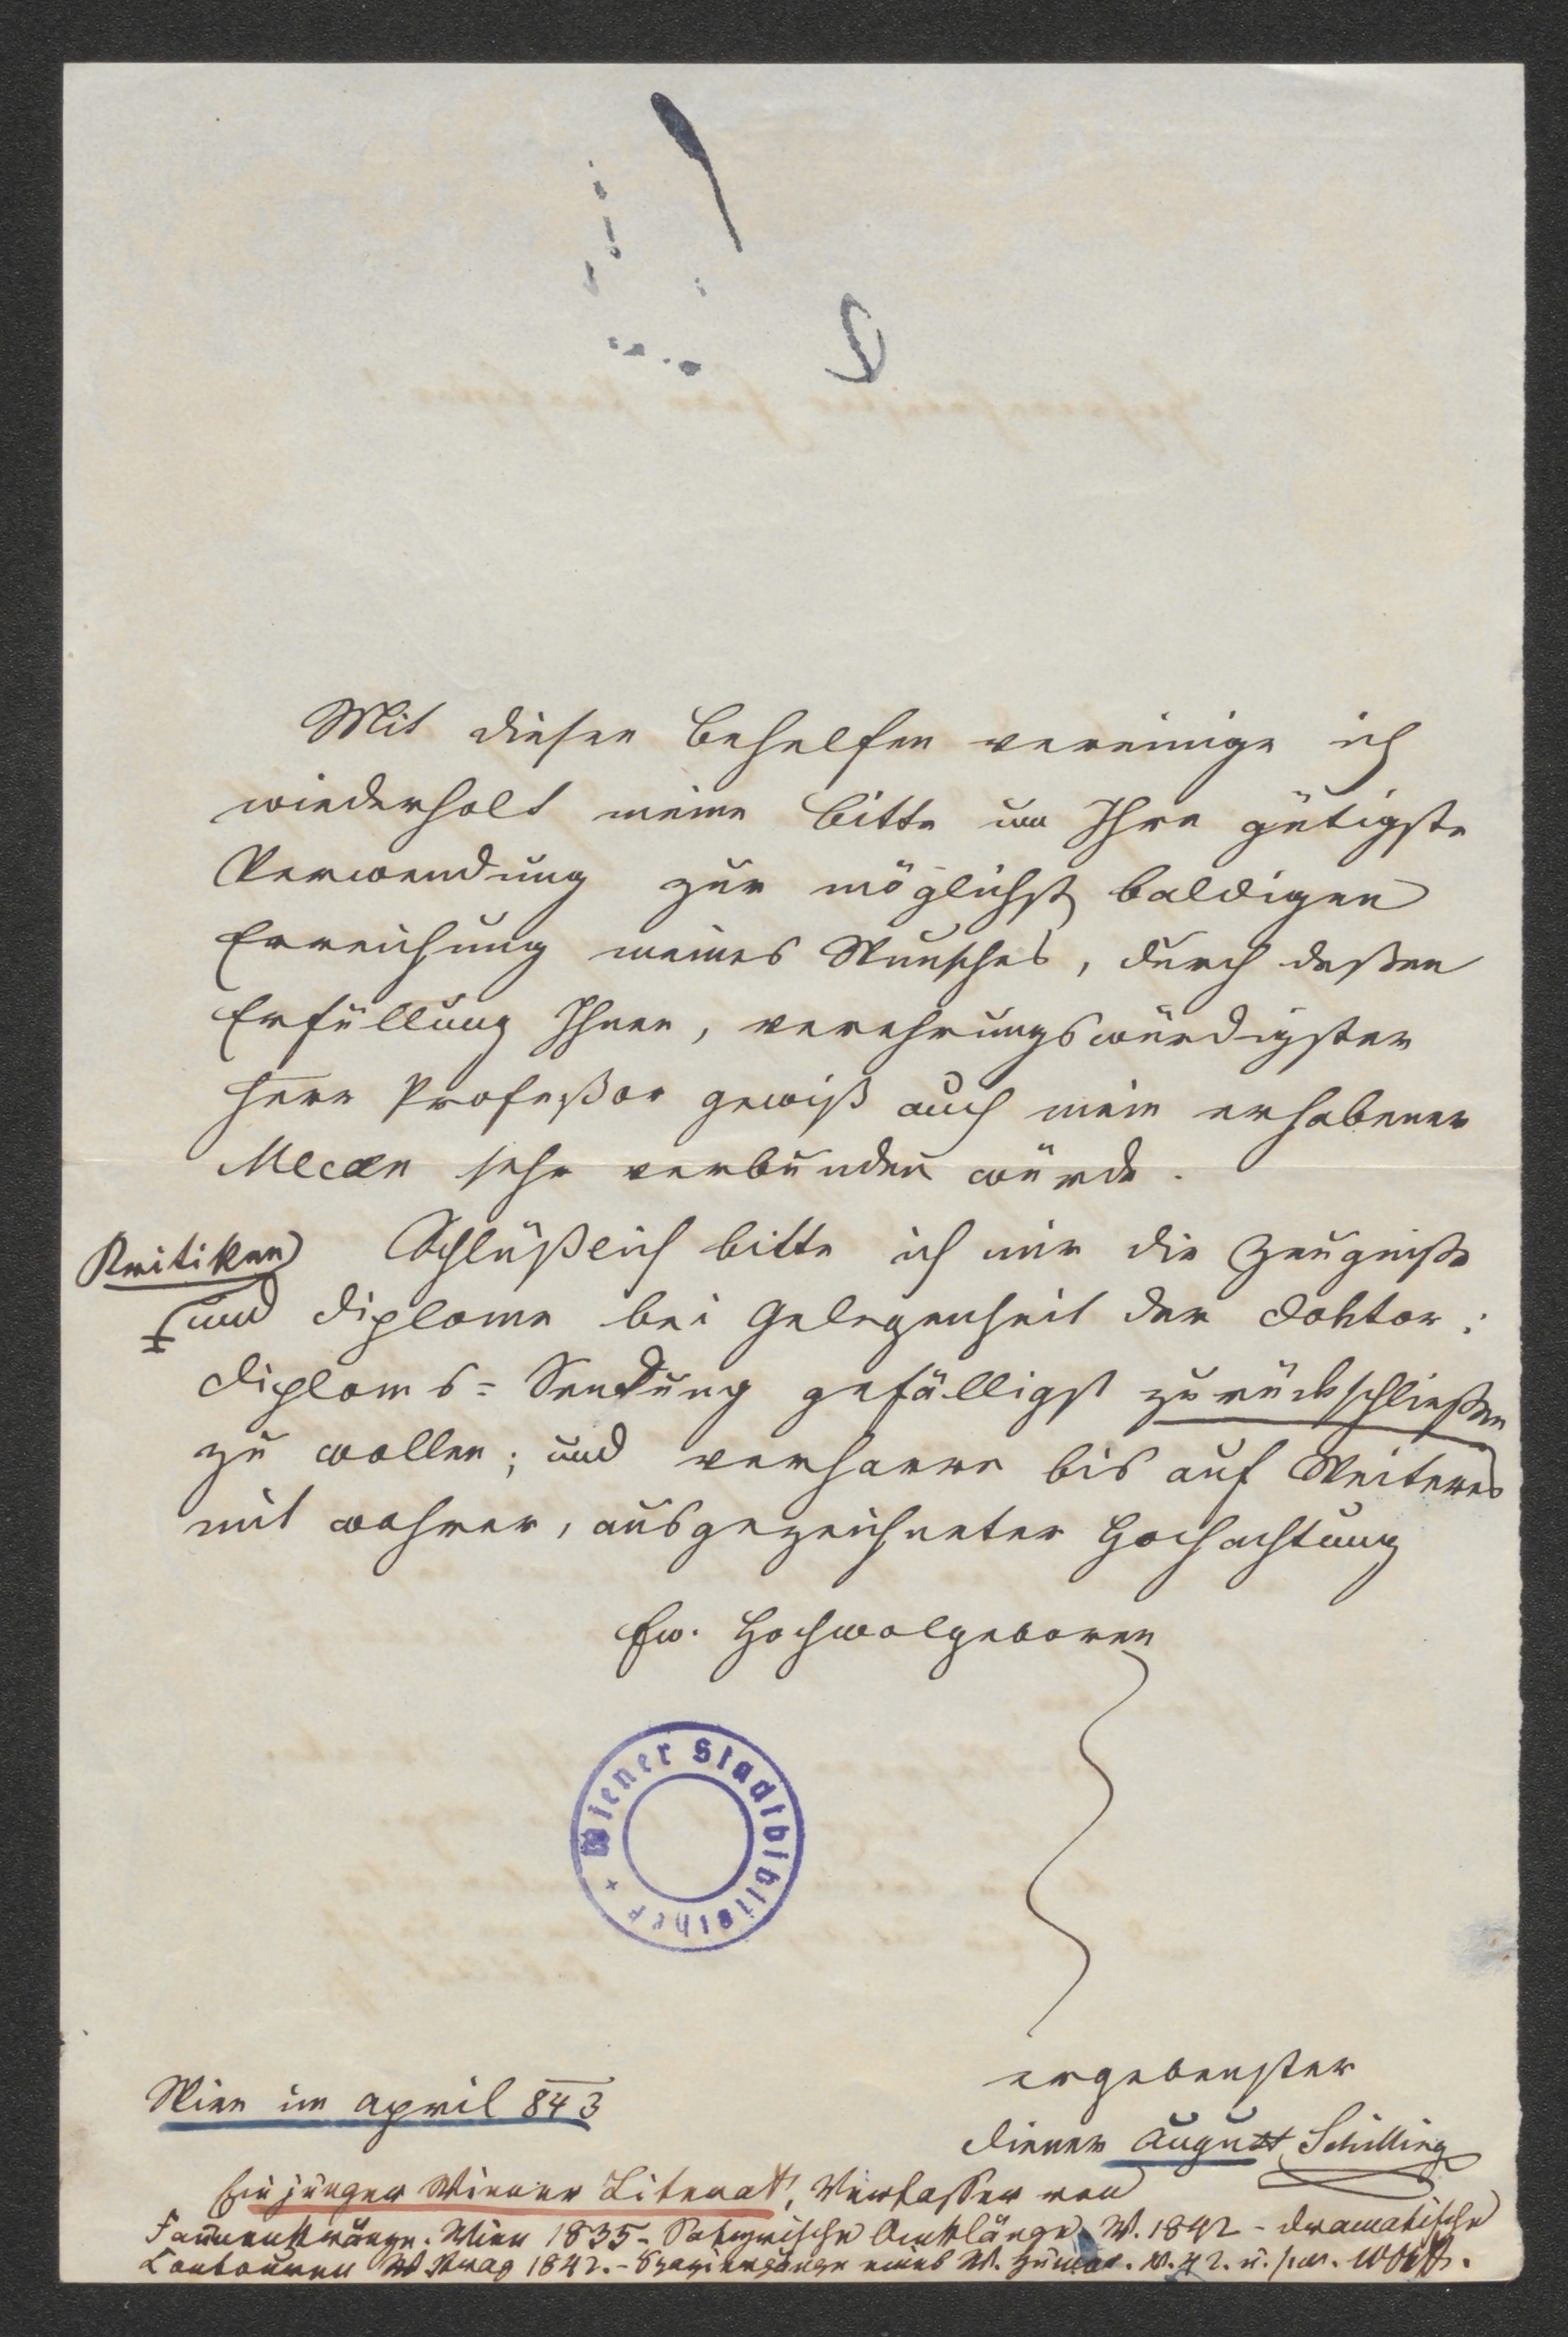 Mit diesen Behelfen vereinige ich
wiederholt meine Bitte um Ihre gütigste
Verwendung zur möglichst baldigen
Erreichung meines Wunsches, durch deßen
Erfüllung Ihnen, verehrungswürdigster
Herr Profeßor gewiß auch mein erhabener
Mecæn sehr verbunden würde.
Kritiken
Schlüßlich bitte ich mir die Zeugniße
und Diplome bei Gelegenheit der Doktor:
Diploms=Sendung gefälligst zurückschließen
zu wollen; und verharre bis auf Weiteres
mit wahrer, ausgezeichneter Hochachtung
Ew. Hochwolgeboren
Wiener Stadtbibliothek
ergebenster
Diener August Schilling
Wien im April 843
Ein junger Wiener Literat, Verfasser von
Tannenkränze. Wien 1835 - Satyrische Anklänge W. 1842 - Dramatische
Prag 1842. - Spaziergänge eines W. Humor. W. 42. u.